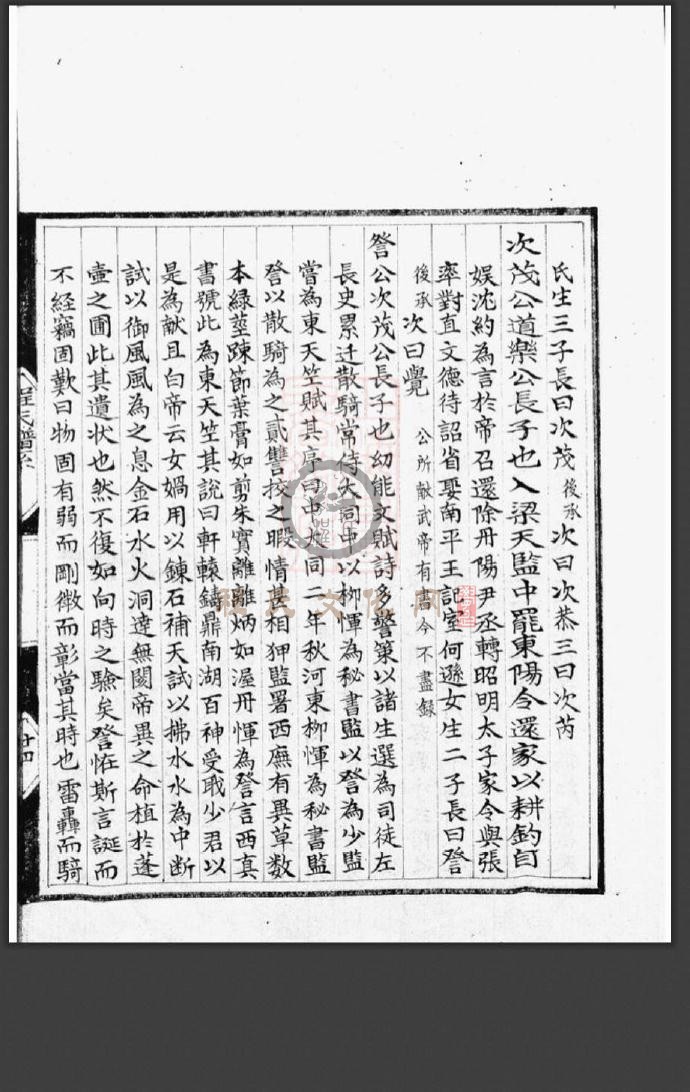 氏生三子長曰次茂後承次曰次恭三曰次芮
次茂公道樂公長子也入梁天監中罷東陽令還家以耕釣自
娱沈約為言於帝召還除丹陽尹丞轉昭明太子家令與張
率對直文德待詔省娶南平王記室何遜女生二子長曰詧
後承次曰覺公所献武帝有書今不盡録
詧公次茂公長子也幼能文賦詩多警策以諸生選為司徒左
長史累迁散騎常侍大同中以柳惲為秘書監以詧為少監
嘗為東天竺賦其序曰中大同二年秋河東柳惲為秘書監
詧以散騎為之貳讐挍之暇情甚相狎監署西廡有異草数
本緑莖踈節葉膏如剪朱實離離炳如渥丹惲為詧言西真
書號此為東天竺其說曰軒轅鑄鼎南湖百神受职少君以
是為献且白帝云女媧用以鍊石補天試以拂水水為中断
試以御風風為之息金石水火洞達無閡帝異之命植於蓬
壷之圃此其遺状也然不復如向時之驗矣詧恠斯言誕而
不經竊固歎曰物固有弱而剛微而彰當其時也雷轟而騎
程氏譜系
廿四
程氏文化网